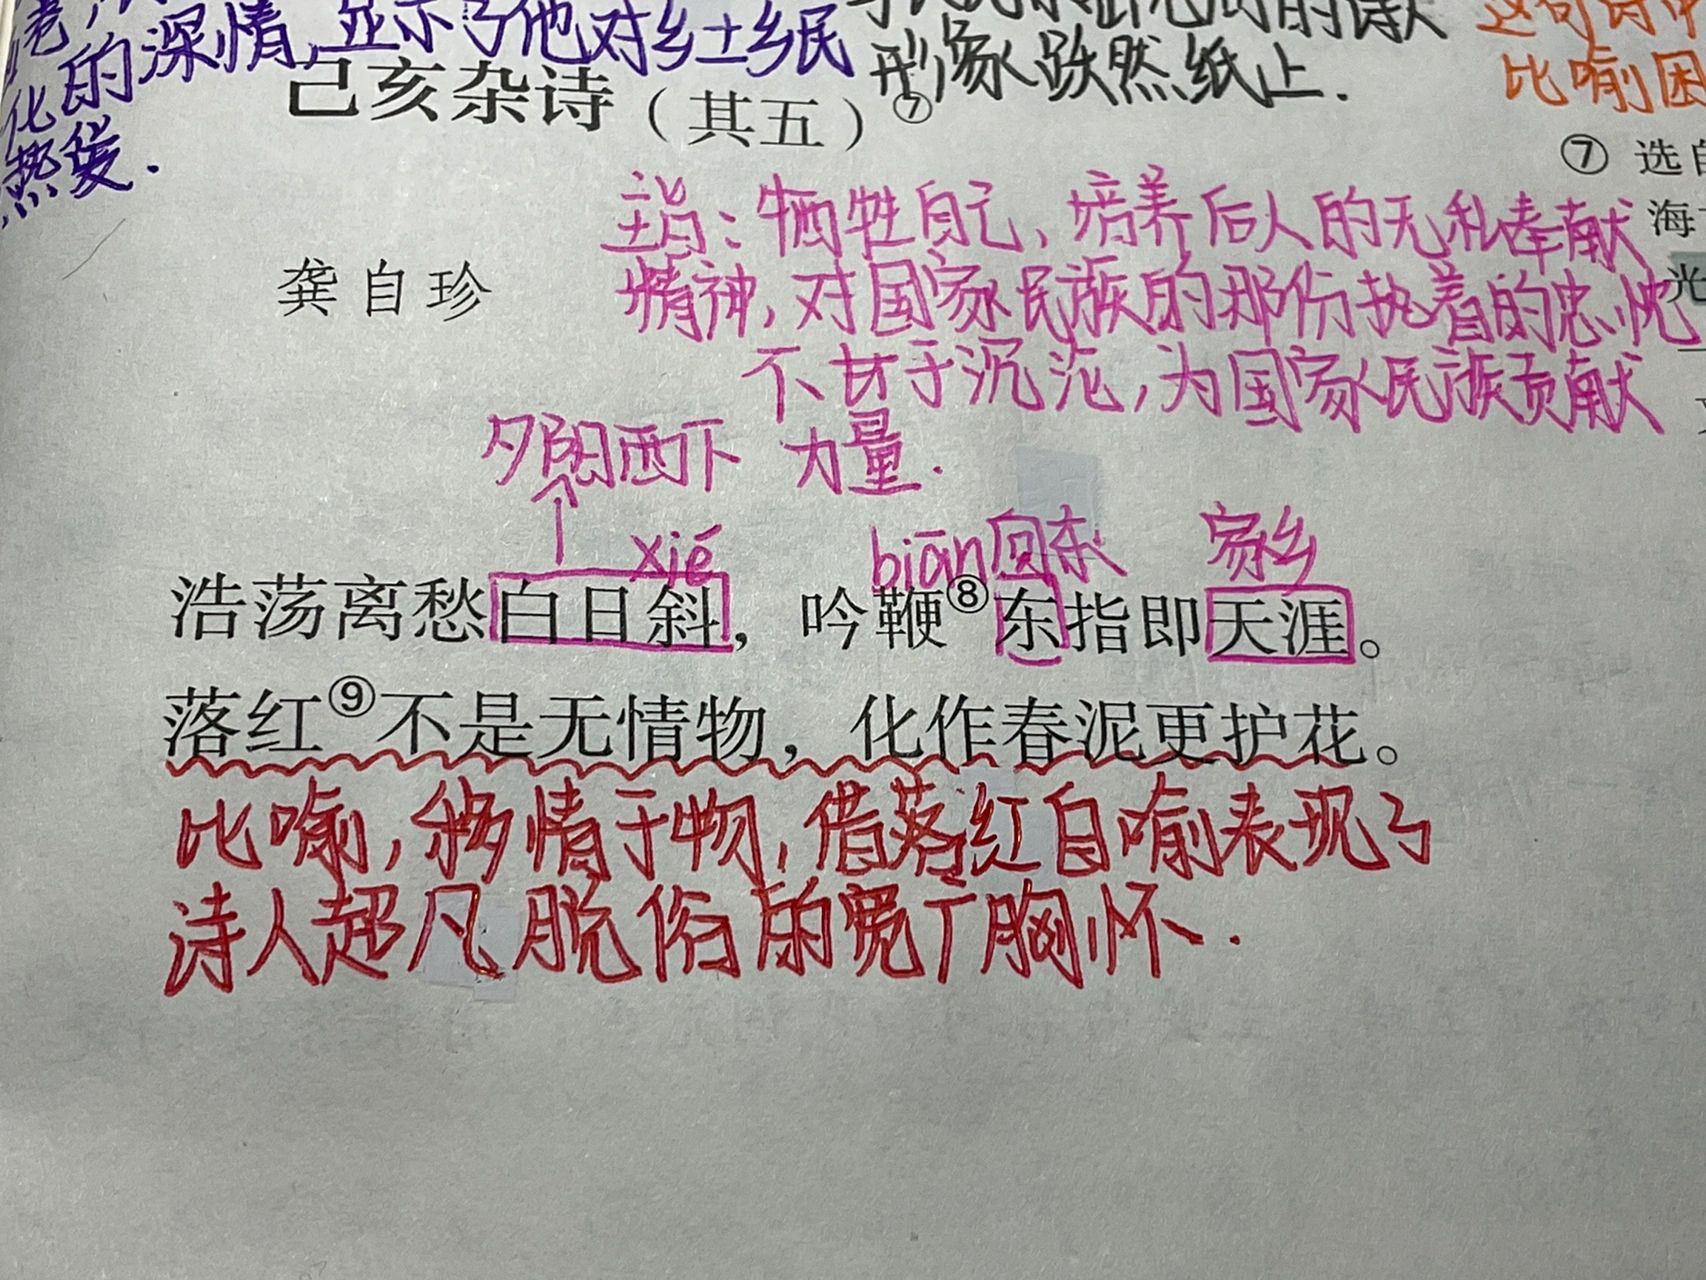 的深情,显示了他对乡土乡民
化
热爱.
形象跃然纸上.
比喻
己亥杂诗(其五)⑦
⑦ 选自
海
主旨:牺牲自己,培养后人的无私奉献
精神,对国家民族的那份执着的忠忱
光
不甘于沉沦,为国家民族贡献
力量.
龚自珍
夕阳西下
xié
biān
向东
家乡
浩荡离愁白日斜,吟鞭⑧东指即天涯。
落红⑨不是无情物,化作春泥更护花。
比喻,移情于物,借落红自喻表现了
诗人超凡脱俗的宽广胸怀.